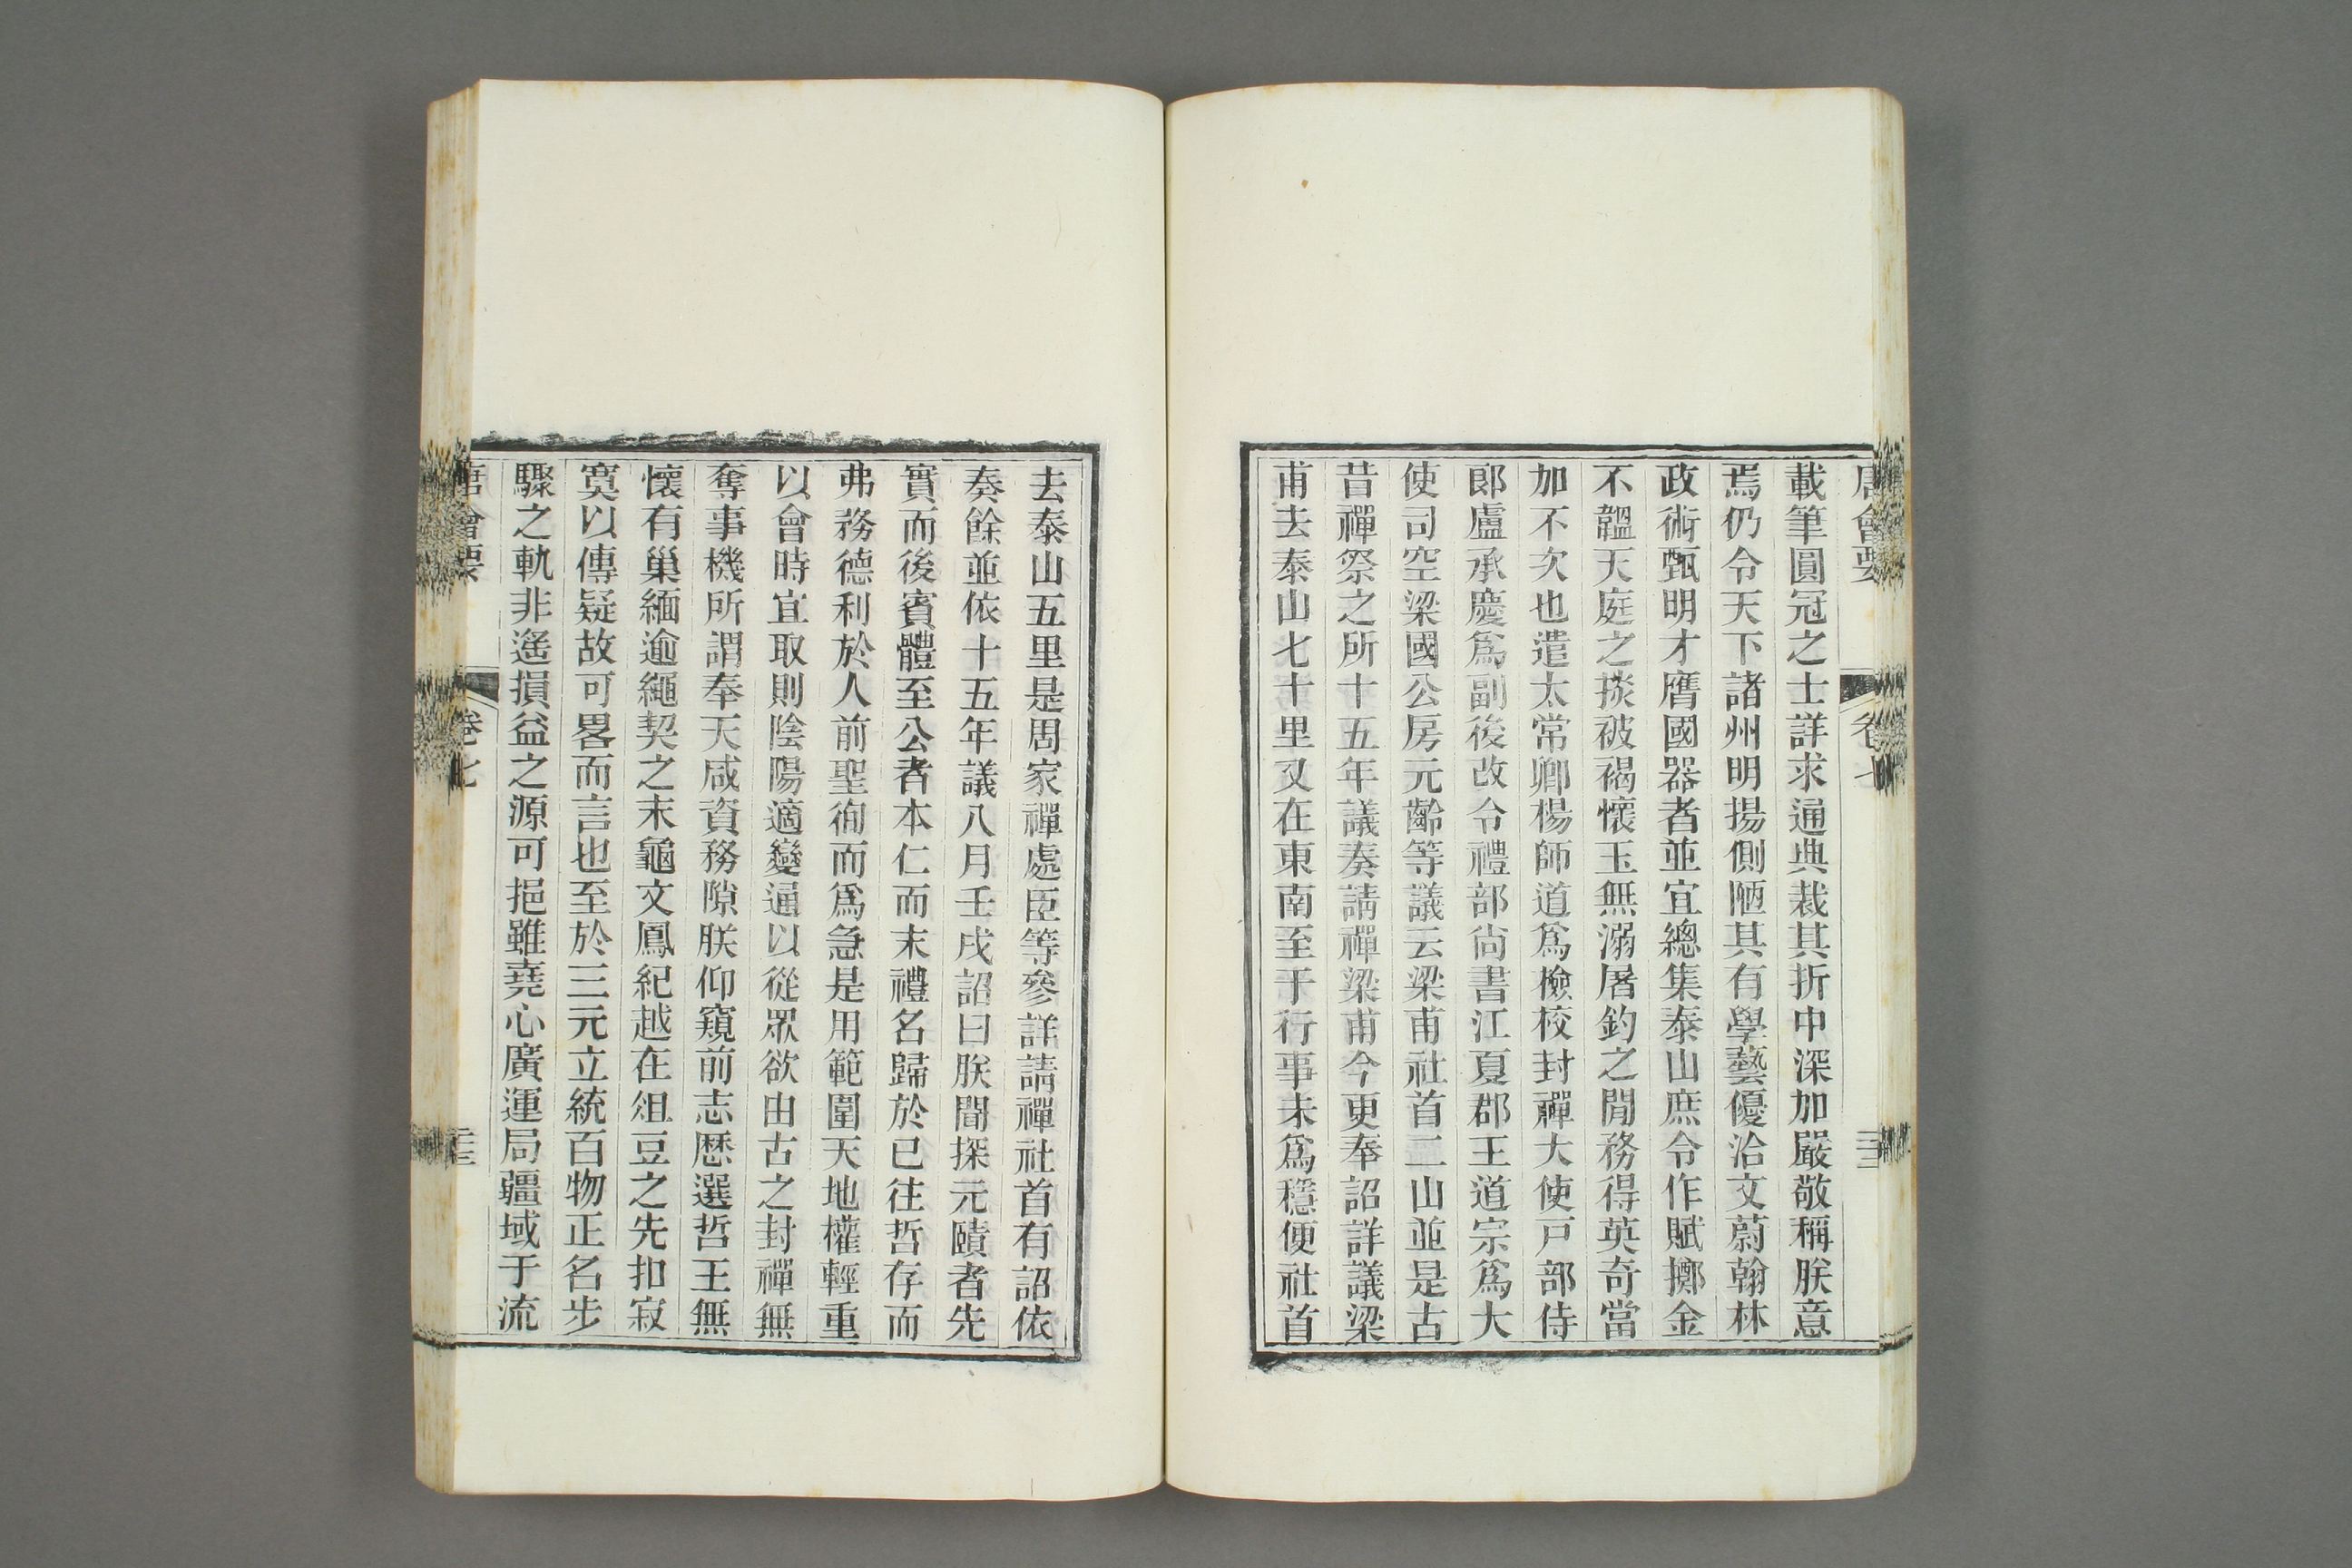 唐會要 卷七
載筆圓冠之士詳求通典裁其折中深加嚴敬稱朕意
焉仍令天下諸州明揚側陋其有學藝優洽文蔚翰林
政術甄明才膺國器者並宜總集泰山庶令作賦擲金
不韞天庭之掞被褐懷玉無溺屠釣之閒務得英奇當
加不次也遣太常卿楊師道爲檢校封禪大使戸部侍
郎盧承慶爲副後改令禮部尚書江夏郡王道宗爲大
使司空梁國公房元齡等議云梁甫社首二山並是古
昔禪祭之所十五年議奏請禪梁甫今更奉詔詳議梁
甫去泰山七十里又在東南至于行事未爲穩便社首
去泰山五里是周家禪處臣等參詳請禪社首有詔依
奏餘並依十五年議八月壬戌詔曰朕聞探元賾者先
實而後賓體至公者本仁而末禮名歸於已往哲存而
弗務德利於人前聖徇而爲急是用範圍天地權輕重
以會時宜取則陰陽適變通以從眾欲由古之封禪無
奪事機所謂奉天咸資務隙朕仰窺前志歷選哲王無
懷有巢緬逾繩契之末龜文鳳紀越在俎豆之先扣寂
寞以傳疑故可畧而言也至於三元立統百物正名步
驟之軌非遙損益之源可挹雖堯心廣運局疆域于流
唐會要 卷七